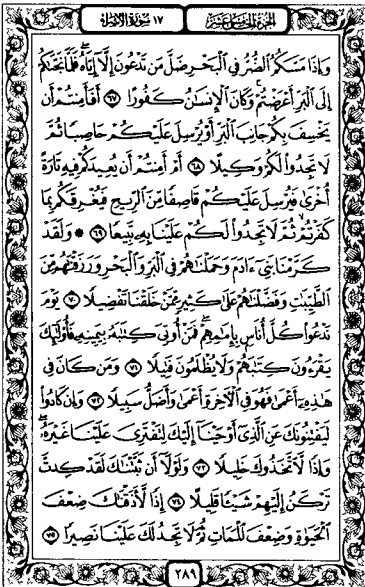 الجزء الخامس عشر
١٧ سورة الإسراء
وَإِذَا مَسَّكُمُ ٱلضُّرُّ فِى ٱلْبَحْرِ ضَلَّ مَن تَدْعُونَ إِلَّآ إِيَّاهُ فَلَمَّا نَجَّىٰكُمْ
إِلَى ٱلْبَرِّ أَعْرَضْتُمْ وَكَانَ ٱلْإِنسَٰنُ كَفُورًا ٦٧ أَفَأَمِنتُمْ أَن
يَخْسِفَ بِكُمْ جَانِبَ ٱلْبَرِّ أَوْ يُرْسِلَ عَلَيْكُمْ حَاصِبًا ثُمَّ
لَا تَجِدُوا۟ لَكُمْ وَكِيلًا ٦٨ أَمْ أَمِنتُمْ أَن يُعِيدَكُمْ فِيهِ تَارَةً
أُخْرَىٰ فَيُرْسِلَ عَلَيْكُمْ قَاصِفًا مِّنَ ٱلرِّيحِ فَيُغْرِقَكُم بِمَا
كَفَرْتُمْ ثُمَّ لَا تَجِدُوا۟ لَكُمْ عَلَيْنَا بِهِۦ تَبِيعًا ٦٩ ۞ وَلَقَدْ
كَرَّمْنَا بَنِىٓ ءَادَمَ وَحَمَلْنَٰهُمْ فِى ٱلْبَرِّ وَٱلْبَحْرِ وَرَزَقْنَٰهُم مِّنَ
ٱلطَّيِّبَٰتِ وَفَضَّلْنَٰهُمْ عَلَىٰ كَثِيرٍ مِّمَّنْ خَلَقْنَا تَفْضِيلًا ٧٠ يَوْمَ
نَدْعُوا۟ كُلَّ أُنَاسٍۭ بِإِمَٰمِهِمْ فَمَنْ أُوتِىَ كِتَٰبَهُۥ بِيَمِينِهِۦ فَأُو۟لَٰٓئِكَ
يَقْرَءُونَ كِتَٰبَهُمْ وَلَا يُظْلَمُونَ فَتِيلًا ٧١ وَمَن كَانَ فِى
هَٰذِهِۦٓ أَعْمَىٰ فَهُوَ فِى ٱلْءَاخِرَةِ أَعْمَىٰ وَأَضَلُّ سَبِيلًا ٧٢ وَإِن كَادُوا۟
لَيَفْتِنُونَكَ عَنِ ٱلَّذِىٓ أَوْحَيْنَآ إِلَيْكَ لِتَفْتَرِىَ عَلَيْنَا غَيْرَهُۥ
وَإِذًا لَّٱتَّخَذُوكَ خَلِيلًا ٧٣ وَلَوْلَآ أَن ثَبَّتْنَٰكَ لَقَدْ كِدتَّ
تَرْكَنُ إِلَيْهِمْ شَيْـًٔا قَلِيلًا ٧٤ إِذًا لَّأَذَقْنَٰكَ ضِعْفَ
ٱلْحَيَوٰةِ وَضِعْفَ ٱلْمَمَاتِ ثُمَّ لَا تَجِدُ لَكَ عَلَيْنَا نَصِيرًا ٧٥
٢٨٩